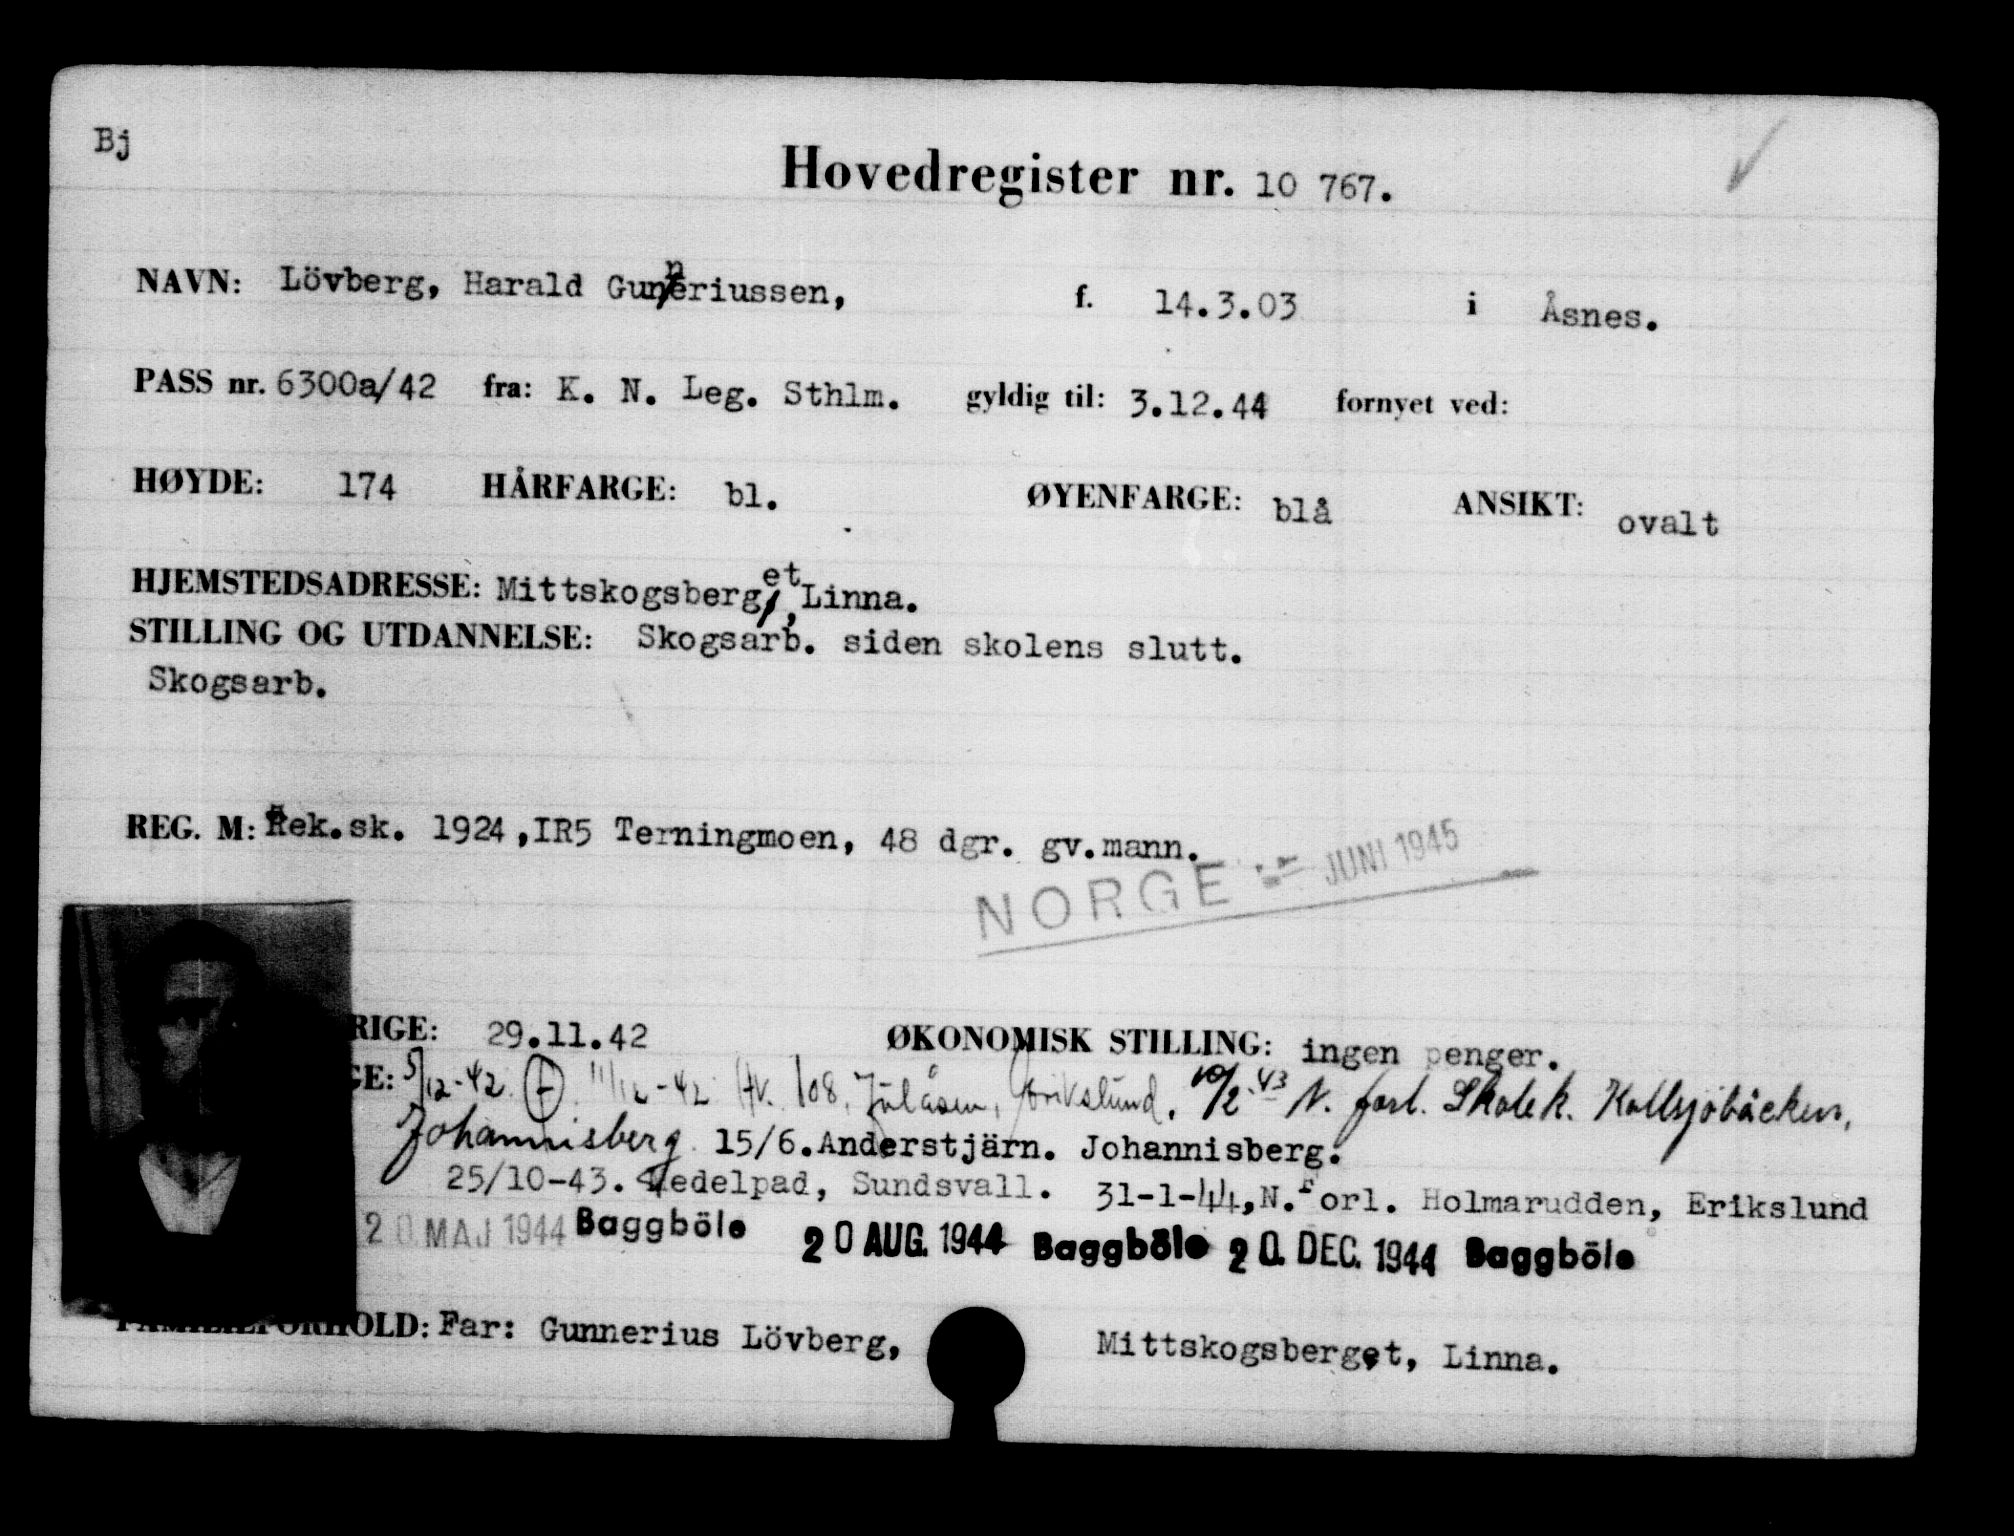 Bj
Hovedregister nr. 10 767.
NAVN: Lövberg, Harald Gunneriussen, f. 14.3.03 i Åsnes.
PASS nr. 6300a/42 fra: K. N. Leg. Sthlm. gyldig til: 3.12.44 fornyet ved:
HØYDE: 174 HÅRFARGE: bl. ØYENFARGE: blå ANSIKT: ovalt
HJEMSTEDSADRESSE: Mittskogsberget, Linna.
STILLING OG UTDANNELSE: Skogsarb. siden skolens slutt.
Skogsarb.
REG. M: Rek.sk. 1924, IR5 Terningmoen, 48 dgr. gv.mann.
NORGE JUNI 1945
RIGE: 29.11.42 ØKONOMISK STILLING: ingen penger.
GE: 5/12-42. 11/12-42 Hv. 108, Julåsen, Erikslund. 10/2-43 N. forl. Skolek. Kallsjöbäcken,
Johannisberg 15/6. Anderstjärn. Johannisberg.
25/10-43. Medelpad, Sundsvall. 31-1-44, N. Forl. Holmarudden, Erikslund
20 MAJ 1944 Baggböle 20 AUG. 1944 Baggböle 20. DEC. 1944 Baggböle
FAMILIEFORHOLD: Far: Gunnerius Lövberg, Mittskogsberget, Linna.